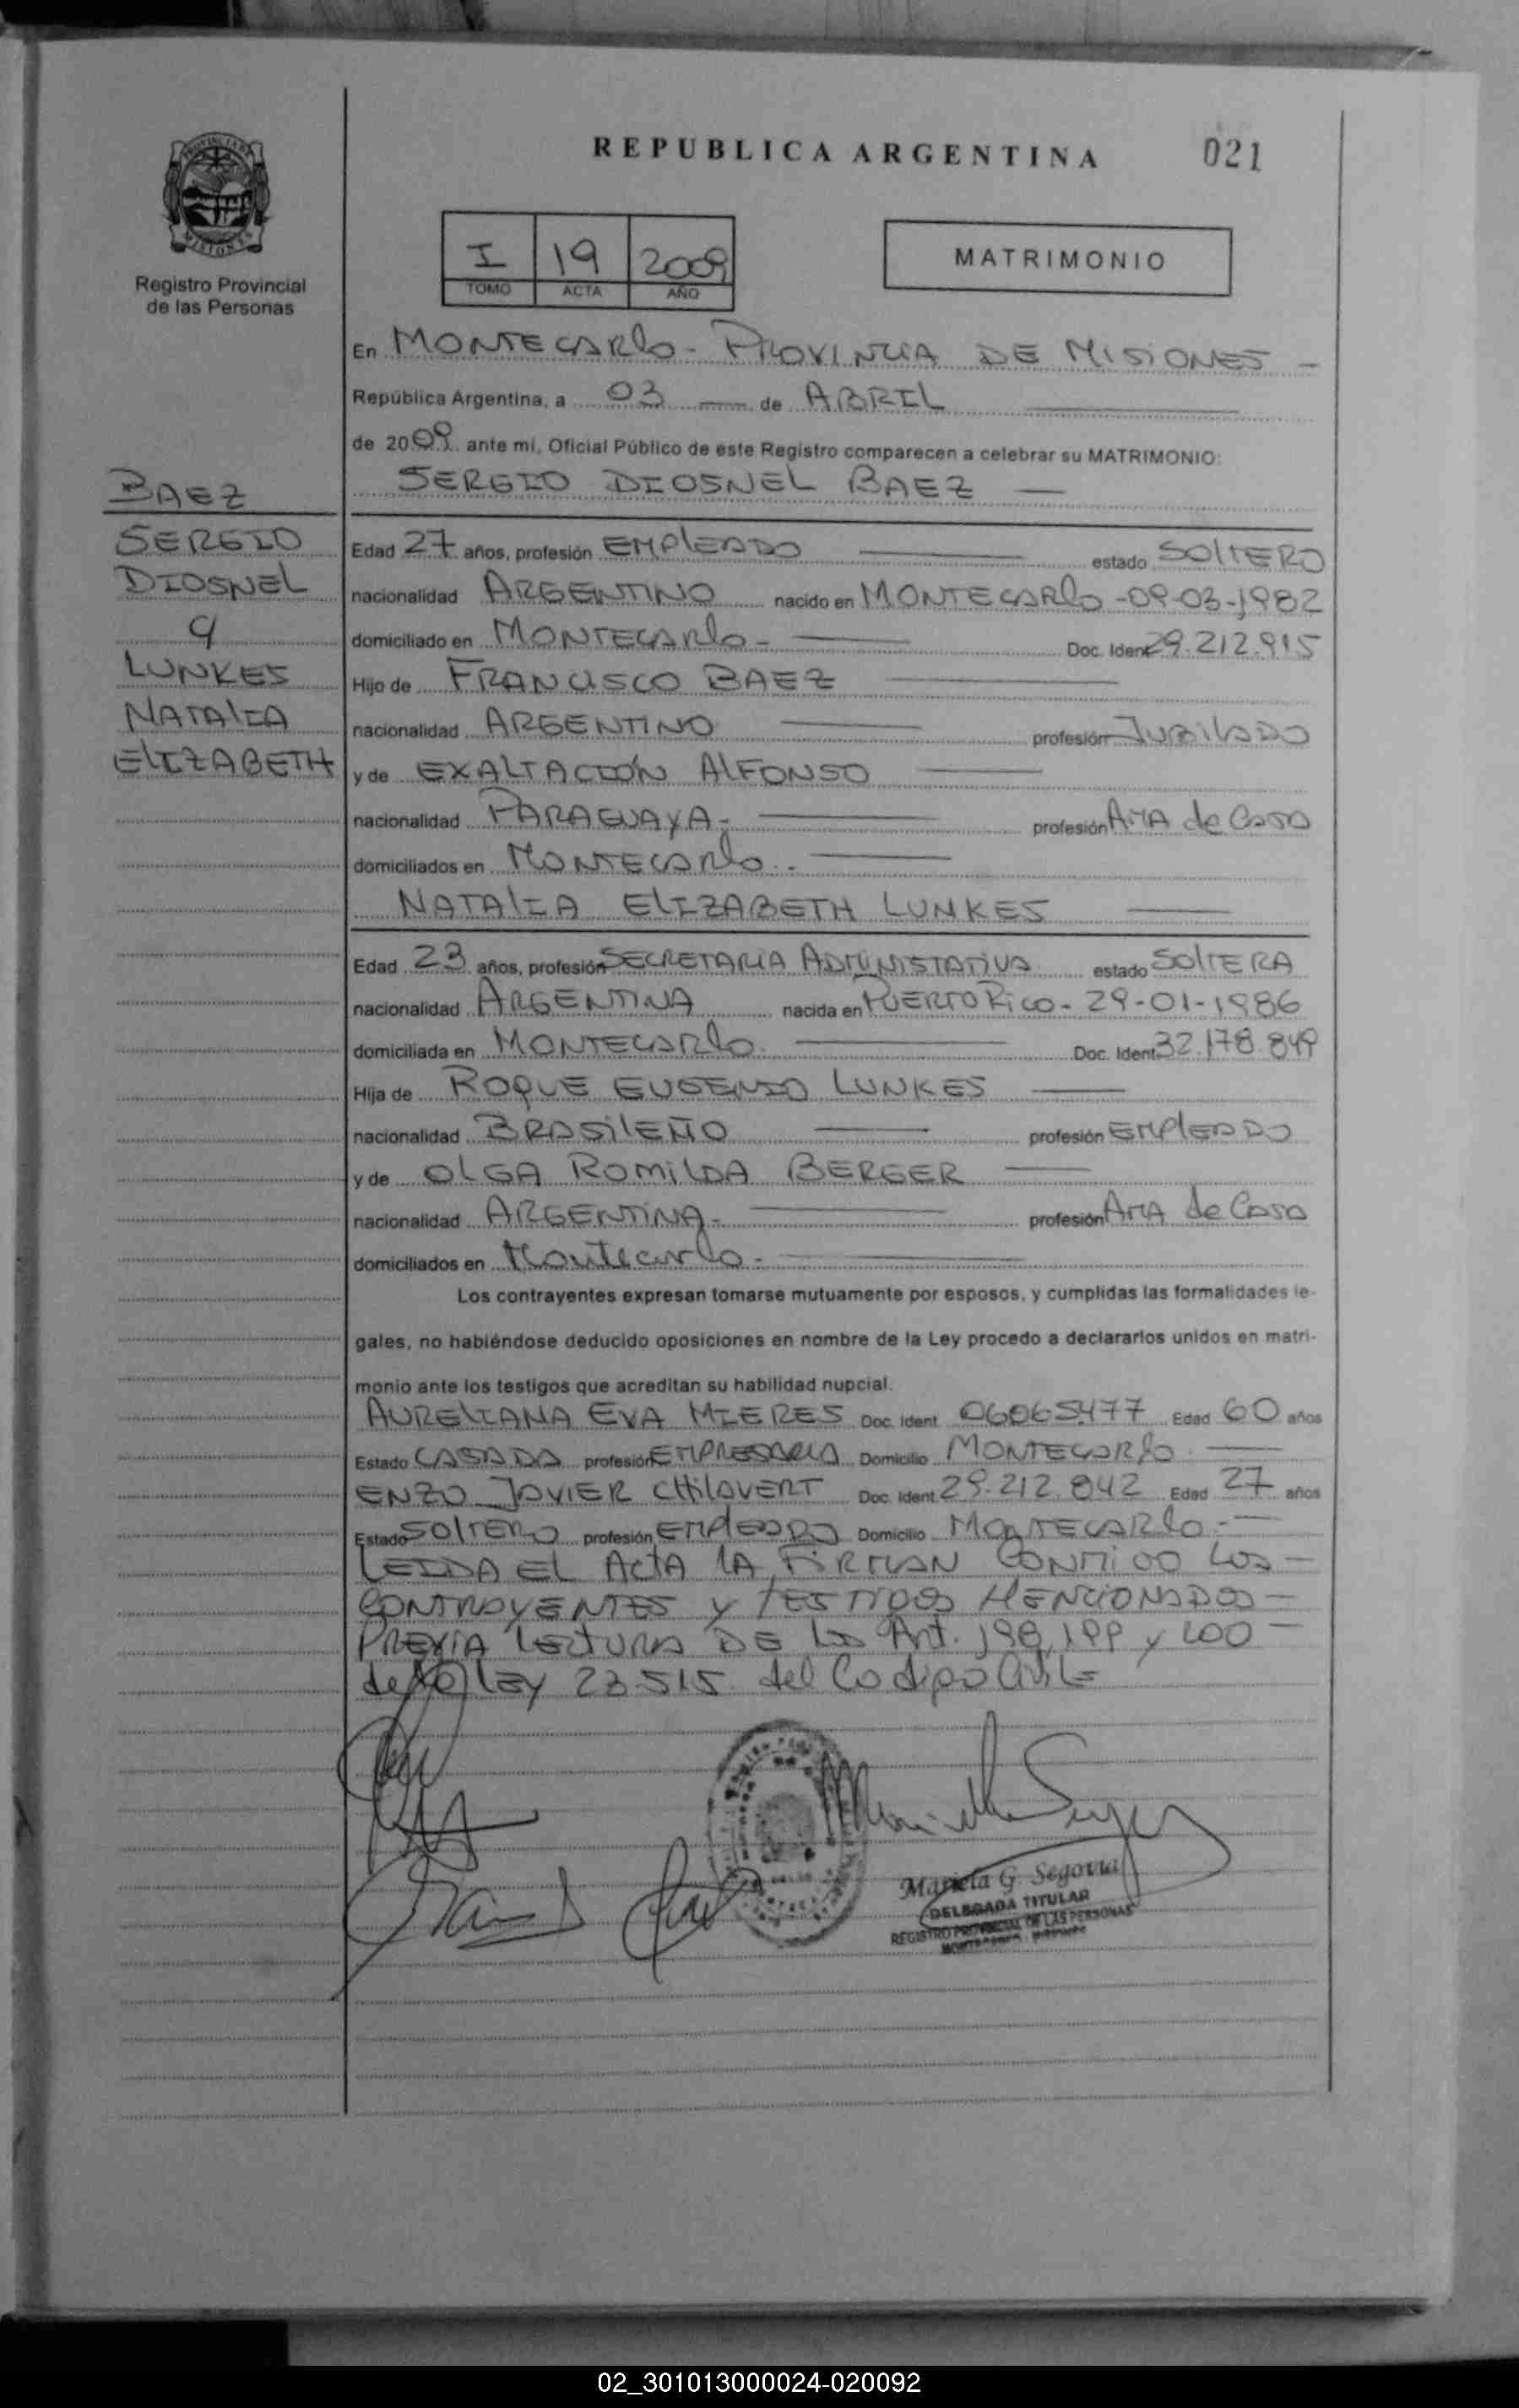 REPUBLICA ARGENTINA 021
PROVINCIA DE
MISIONES
Registro Provincial
de las Personas
I 19 2009
TOMO ACTA AÑO
MATRIMONIO
En MONTECARLO - PROVINCIA DE MISIONES -
República Argentina, a 03 — de ABRIL
de 2009 ante mi, Oficial Público de este Registro comparecen a celebrar su MATRIMONIO:
SERGIO DIOSNEL BAEZ —
BAEZ
SERGIO
DIOSNEL
LUNKES
NATALIA
ELIZABETH
Edad 27 años, profesión EMPLEADO estado SOLTERO
nacionalidad ARGENTINO nacido en MONTECARLO - 09-03-1982
domiciliado en MONTECARLO - Doc. Ident 29.212.915
Hijo de FRANCISCO BAEZ
nacionalidad ARGENTINO profesión JUBILADO
y de EXALTACIÓN ALFONSO
nacionalidad PARAGUAYA - profesión AMA de CASA
domiciliados en MONTECARLO -
NATALIA ELIZABETH LUNKES
Edad 23 años, profesión SECRETARIA ADMINISTATIVA estado SOLTERA
nacionalidad ARGENTINA nacida en PUERTO RICO - 29-01-1986
domiciliada en MONTECARLO - Doc. Ident. 32.178.849
Hija de ROQUE EUGENIO LUNKES
nacionalidad BRASILEÑO profesión EMPLEADO
y de OLGA ROMILDA BERGER
nacionalidad ARGENTINA - profesión AMA de CASA
domiciliados en Montecarlo -
Los contrayentes expresan tomarse mutuamente por esposos, y cumplidas las formalidades le-
gales, no habiéndose deducido oposiciones en nombre de la Ley procedo a declararlos unidos en matri-
monio ante los testigos que acreditan su habilidad nupcial.
AURELIANA EVA MIERES Doc. Ident. 06065477 Edad 60 años
Estado CASADA profesión EMPRESARIA Domicilio MONTECARLO -
ENZO JAVIER CHILAVERT Doc. Ident. 29.212.842 Edad 27 años
Estado SOLTERO profesión EMPLEADO Domicilio MONTECARLO -
LEIDA EL ACTA LA FIRMAN CONMIGO LOS -
CONTRAYENTES Y TESTIGOS MENCIONADOS -
PREVIA LECTURA DE LOS Art. 198, 199 y 200 -
de la LEY 23.515 del Codigo Civil
Mariela G Segovia
DELEGADA TITULAR
REGISTRO PROVINCIAL DE LAS PERSONAS
02_301013000024-020092